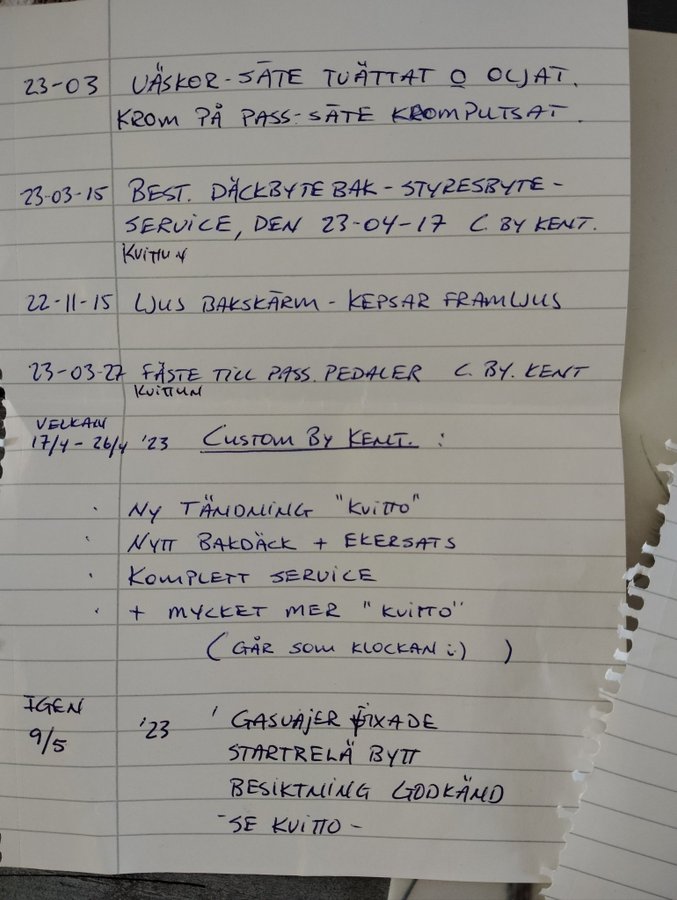 23-03 VÄSKOR-SÄTE TVÄTTAT O OLJAT.
KROM PÅ PASS-SÄTE KROMPUTSAT.
23-03-15 BEST. DÄCKBYTE BAK-STYRESBYTE-
SERVICE, DEN 23-04-17 C. BY KENT.
22-11-15 LJUS BAKSKÄRM - KEPSAR FRAMLJUS
23-03-27 FÄSTE TILL PASS. PEDALER C. BY. KENT
17/4 - 26/4 '23 CUSTOM BY KENT. :
· NY TÄNDNING "KVITTO"
· NYTT BAKDÄCK + EKERSATS
· KOMPLETT SERVICE
· + MYCKET MER "KVITTO"
(GÅR SOM KLOCKAN :) )
IGEN
9/5 '23 ' GASVAJER FIXADE
STARTRELÄ BYTT
BESIKTNING GODKÄND
-SE KVITTO-